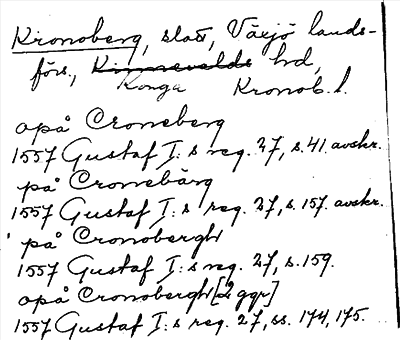 Kronoberg, slott, Växjö lands-
förs., Kinnevalds hd,
Konga Kronob. l.
opå Croneberg
1557 Gustaf I:s reg. 27, s. 41. avskr.
på Cronebärg
1557 Gustaf I:s reg. 27, s. 157. avskr.
på Cronobergh
1557 Gustaf I:s reg. 27, s. 159.
opå Cronobergh [2 ggr]
1557 Gustaf I:s reg. 27, ss. 174, 175.